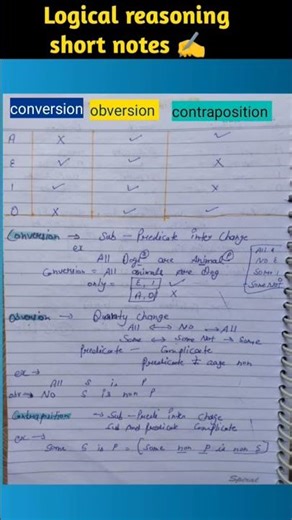 Logical reasoning
short notes ✍
conversion obversion contraposition
A × ✓ ✓
E ✓ ✓ ×
I ✓ ✓ ×
O × ✓ ✓
Conversion → Sub - Predicate inter change
ex All Dog S are Animal P
Conversion = All animals are Dog
only = E, I ✓
A, O ×
All
No E
Some I
Some Not
Obversion → Quality change
All ↔ No → All
Some ↔ Some Not → Some
Predicate - Complicate
Predicate non
ex →
All S is P
No S is non P
Contraposition → Sub - Predi inter change
Sub and predicate Complicate
ex →
Some S is P = (Some non P is non S)
Spiral